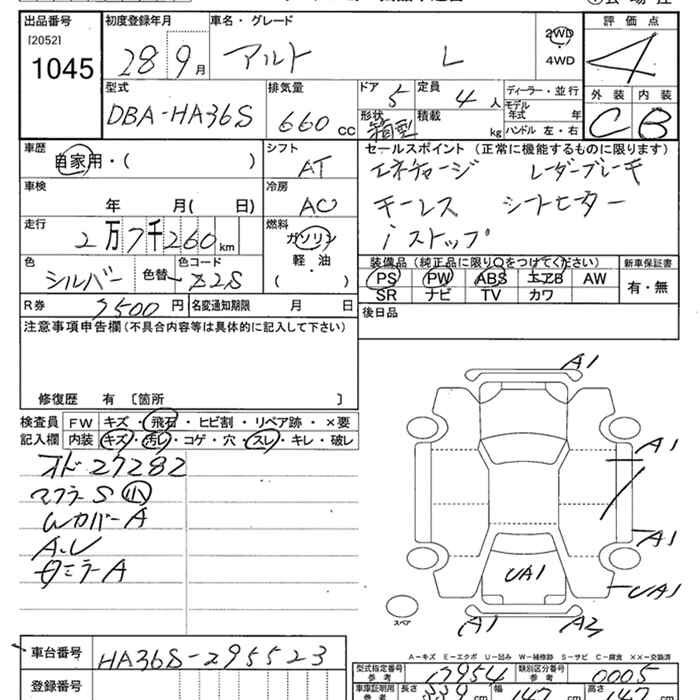 出品番号 初度登録年月 車名・グレード 評価点
[2052] 1045 28 9月 アルト L 2WD・4WD 4
型式 排気量 ドア 定員 ディーラー・並行 外装 内装
DBA-HA36S 660 CC 5 4人 モデル年式 年 C B
形状 箱型 積載 kg ハンドル 左・右
車歴 シフト セールスポイント (正常に機能するものに限ります)
自家用・( ) AT エネチャージ レーダーブレーキ
車検 冷房 キーレス シートヒーター
年 月( 日) AC iストップ
走行 燃料
2万7千260km ガソリン
軽・油
( )
色 色替 色コード 装備品(純正品に限り○をつけてください) 新車保証書
シルバー Z2S PS PW ABS エアB AW 有・無
SR ナビ TV カワ
R券 7500円 名変通知期限 月 日 後日品
注意事項申告欄(不具合内容等は具体的に記入して下さい)
修復歴 有 〔箇所 〕
検査員 FW キズ・飛石・ヒビ割・リペア跡・×要
記入欄 内装 キズ・汚レ・コゲ・穴・スレ・キレ・破レ
オド27282
マフラーS 小
WカバーA
A.U
ミラーA
A1
A1
A1
UA1
UA1
A1 A3
スペア
A-キズ E-エクボ U-凹み W-補修跡 S-サビ C-腐食 ××-交換済
車台番号 HA36S-295523
登録番号
型式指定番号 参考 17954 類別区分番号 参考 0005
車庫証明用 参考 長さ 339 cm 幅 147 cm 高さ 147 cm